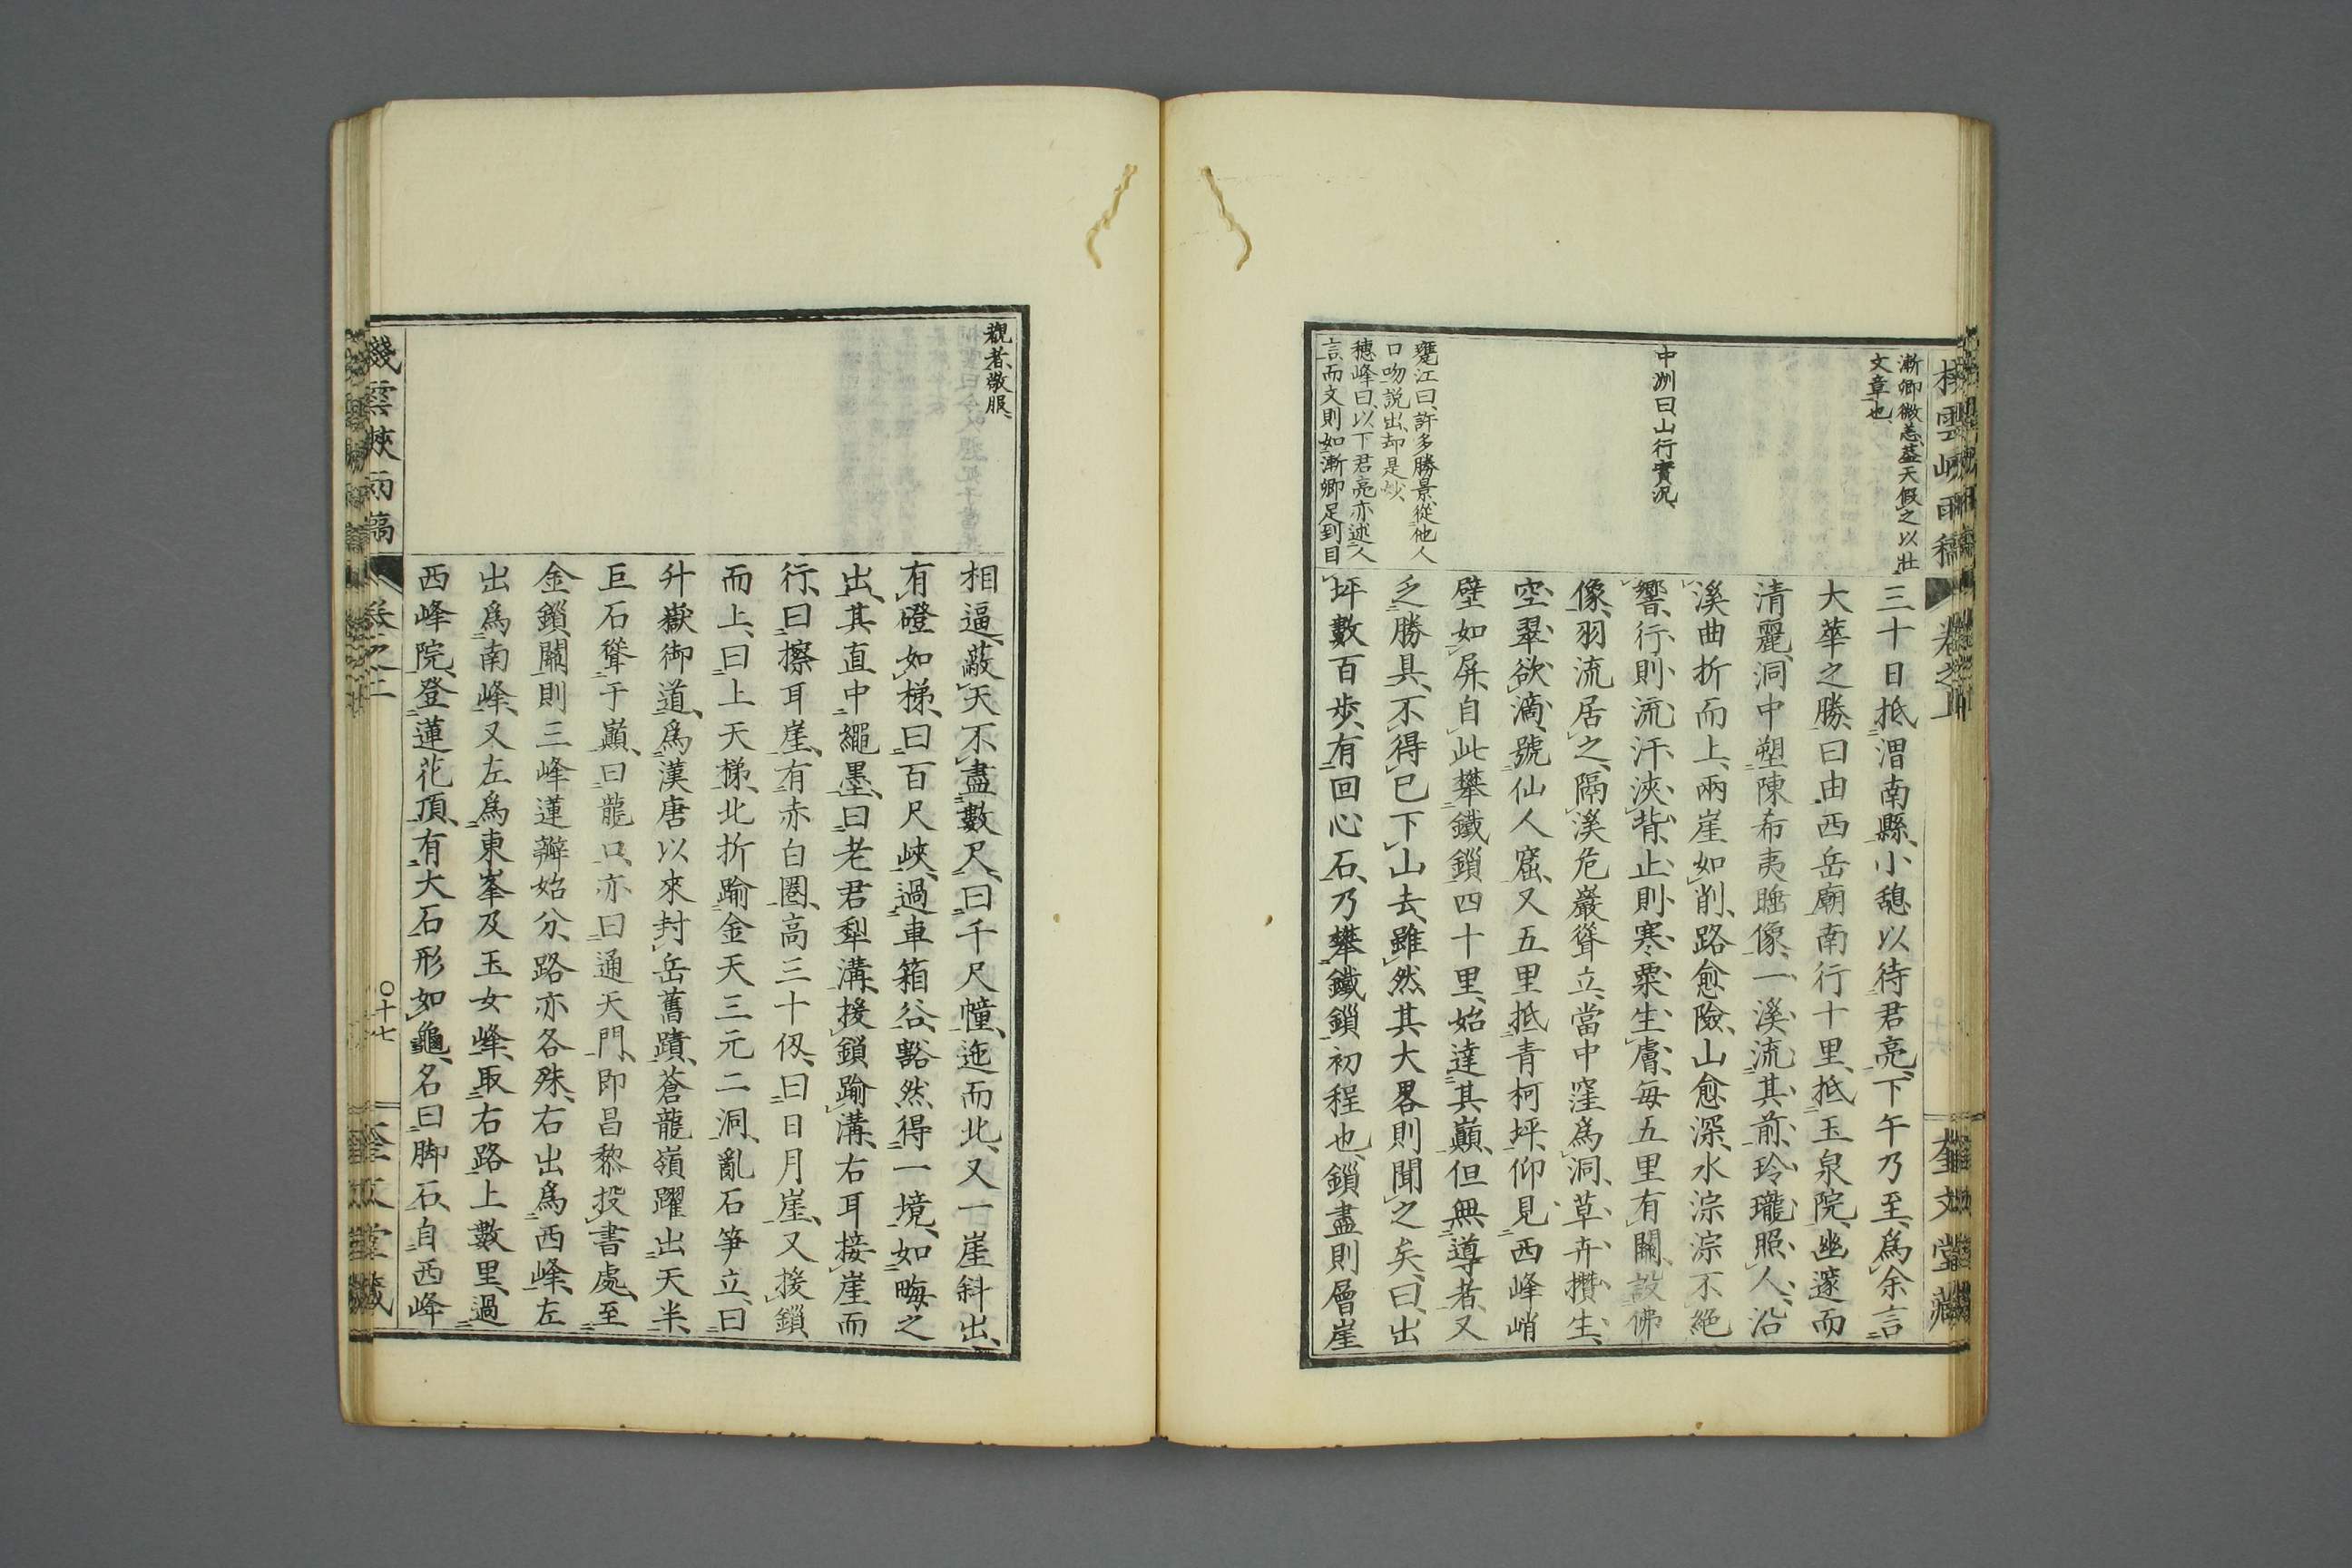 漸卿微恙蓋天假之以壯
文章也
中洲曰山行實況
甕江曰許多勝景從他人
口吻説出却是妙
穗峰曰以下君亮亦述人
言而文則如漸卿足到目
三十日抵渭南縣小憩以待君亮下午乃至爲余言
大華之勝曰由西岳廟南行十里抵玉泉院幽邃而
清麗洞中塑陳希夷睡像一溪流其前玲瓏照人沿
溪曲折而上兩崖如削路愈險山愈深水淙淙不絶
響行則流汗浹背止則寒粟生膚毎五里有關設佛
像羽流居之隔溪危巖聳立當中窪爲洞草卉攢生
空翠欲滴號仙人窟又五里抵青柯坪仰見西峰峭
壁如屏自此攀鐵鎖四十里始達其巓但無導者又
乏勝具不得已下山去雖然其大畧則聞之矣曰出
坪數百步有回心石乃攀鐵鎖初程也鎖盡則層崖
觀者敬服
相逼蔽天不盡數尺曰千尺幢迤而北又一崖斜出
有磴如梯曰百尺峽過車箱谷豁然得一境如畮之
出其直中繩墨曰老君犁溝援鎖踰溝右耳接崖而
行曰擦耳崖有赤白圏高三十仭曰日月崖又援鎖
而上曰上天梯北折踰金天三元二洞亂石笋立曰
升嶽御道爲漢唐以來封岳舊蹟蒼龍嶺躍出天半
巨石聳于巓曰龍口亦曰通天門即昌黎投書處至
金鎖關則三峰蓮瓣始分路亦各殊右出爲西峰左
出爲南峰又左爲東峯及玉女峰取右路上數里過
西峰院登蓮花頂有大石形如龜名曰脚石自西峰
棧雲峽雨稿
卷之上
〇十七
奎文堂藏